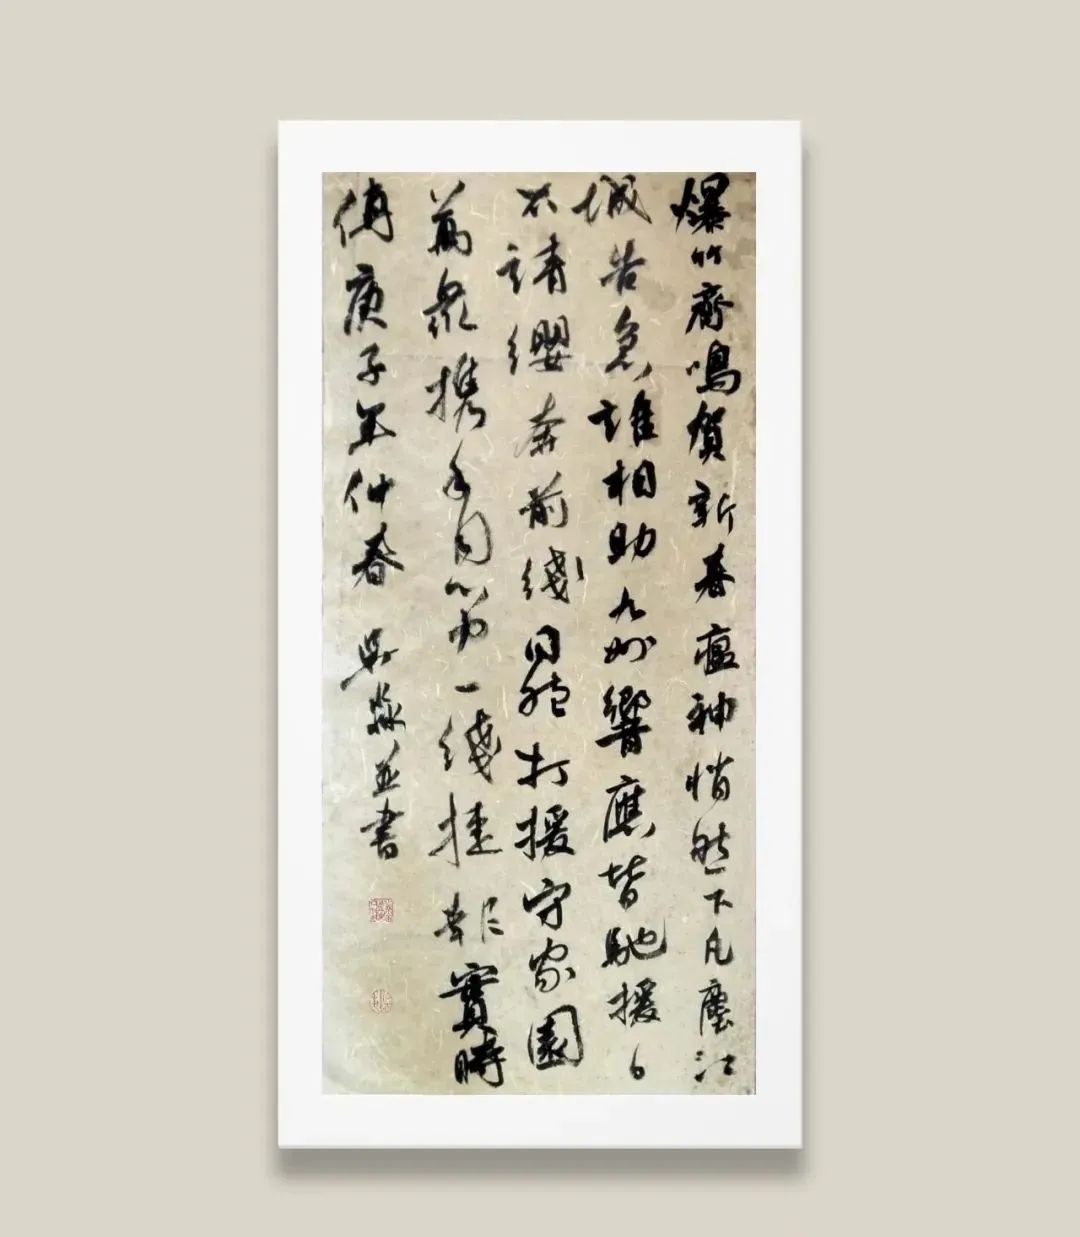 爆竹齊鳴賀新春瘟神悄然下凡塵江
城告急誰相助九州響應皆馳援白
衣請纓奔前綫同胞打援守家園
萬衆携手同心一綫捷報實時
傳庚子年仲春 吳並書